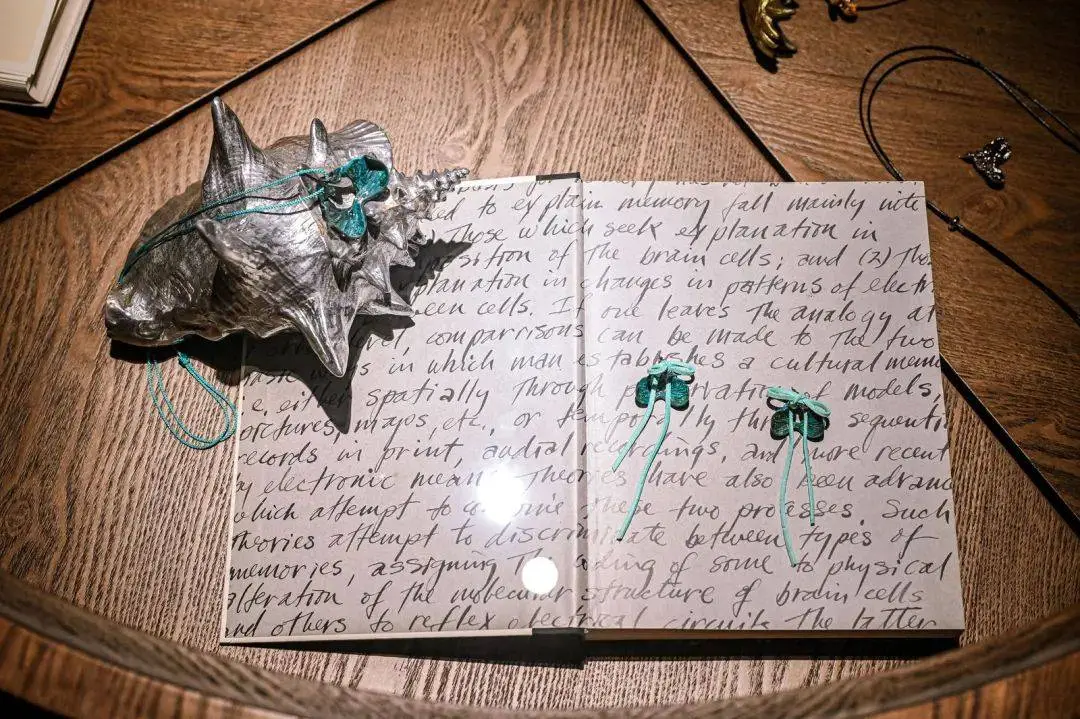 ed to explain memory fall mainly into
Those which seek explanation in
position of the brain cells; and (2) Tho
planation in changes in patterns of electr
een cells. If one leaves the analogy at
level, comparrisons can be made to the two
basic ways in which man establishes a cultural mem
e, either spatially through of models,
pictures, maps, etc., or sequenti
records in print, audial recordings, and more recent
by electronic means. Theories have also been advanc
which attempt to combine these two processes. Such
theories attempt to discriminate between types of
memories, assigning The coding of some to physical
alteration of the molecular structure of brain cells
and others to reflex electrical circuits. The latter